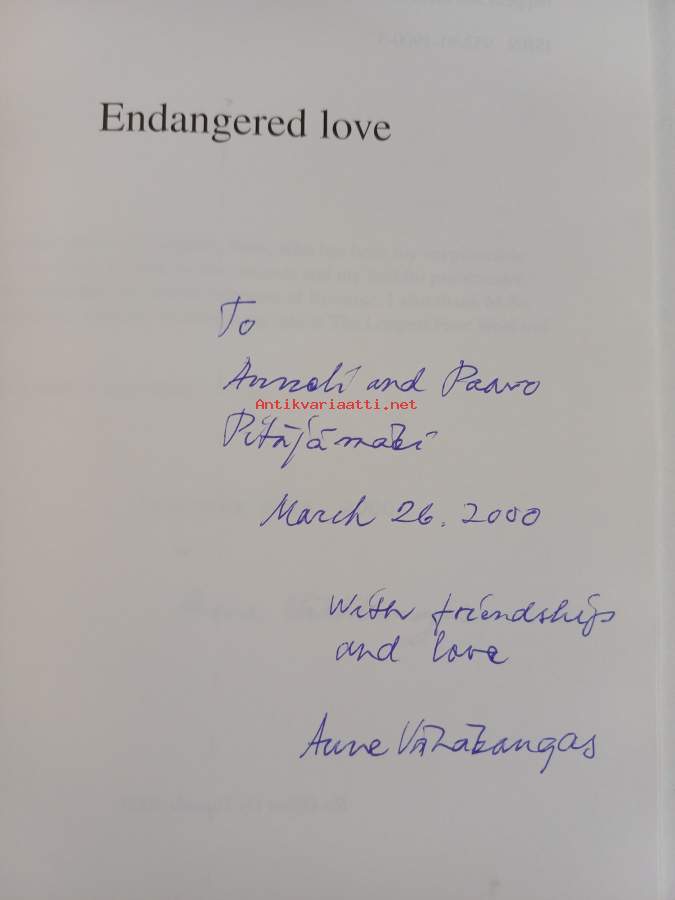 Endangered love
To
Anneli and Paavo
Antikvariaatti.net
Pitäjämäki
March 26. 2000
With friendship
and love
Anne Vähäkangas